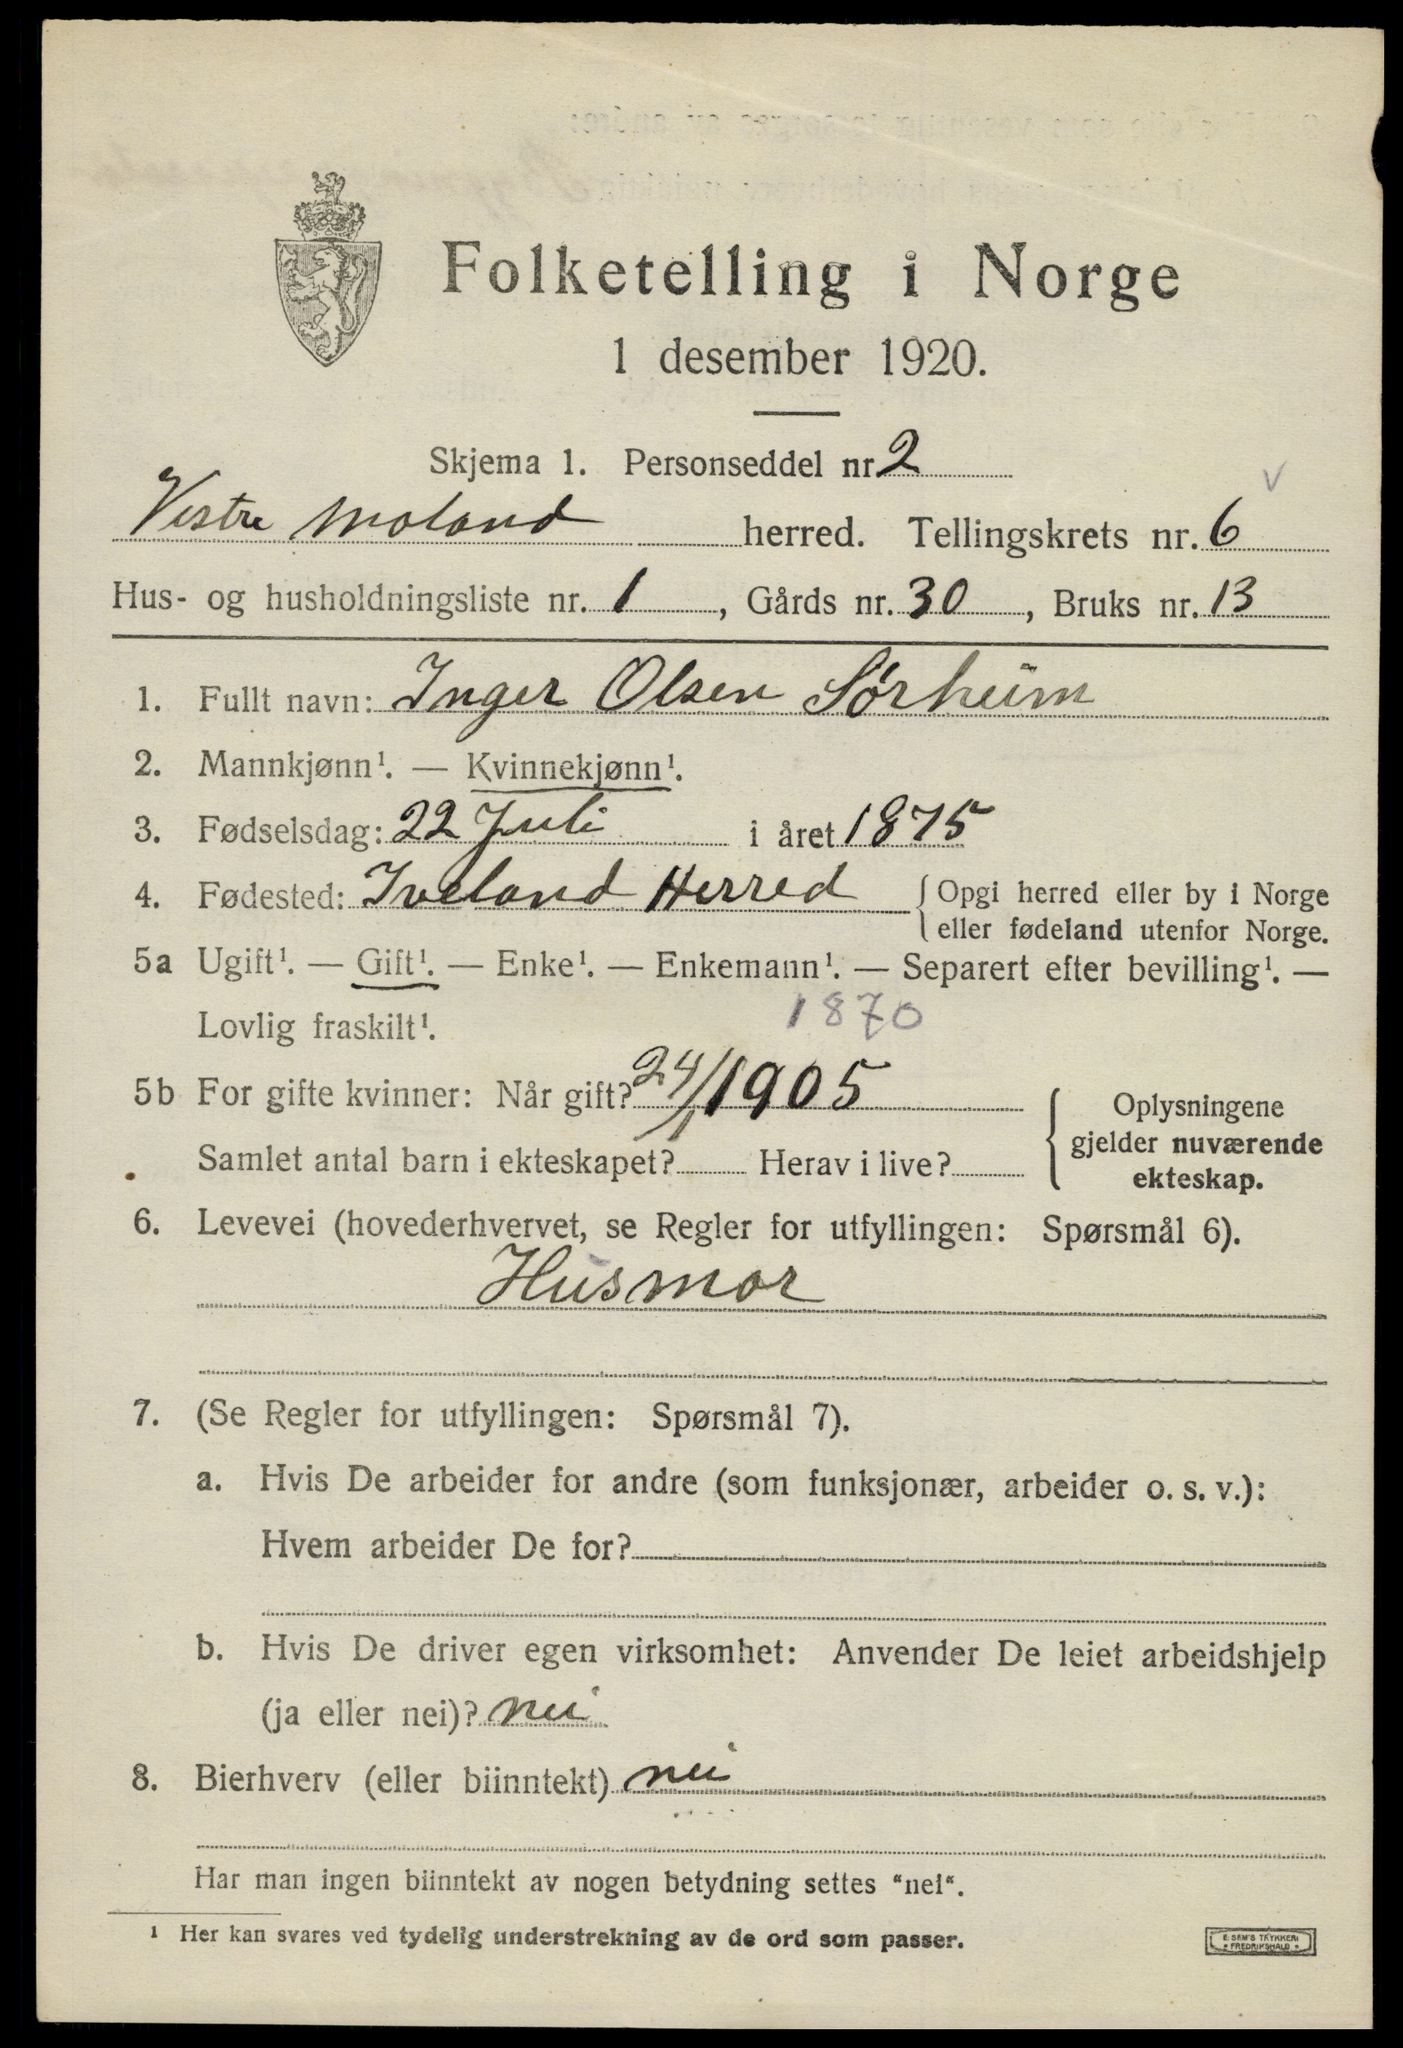 Folketelling i Norge
1 desember 1920.
Skjema 1. Personseddel nr. 2
v
Vestre Moland herred. Tellingskrets nr. 6
Hus- og husholdningsliste nr. 1, Gårds nr. 30, Bruks nr. 13
1. Fullt navn: Inger Olsen Sørheim
2. Mannkjønn¹. — Kvinnekjønn¹.
3. Fødselsdag: 22 Juli i året 1875
4. Fødested: Iveland Herred { Opgi herred eller by i Norge
eller fødeland utenfor Norge.
5a Ugift¹. — Gift¹. — Enke¹. — Enkemann¹. — Separert efter bevilling¹. —
Lovlig fraskilt¹. 1870
5b For gifte kvinner: Når gift? 24/1 1905
Samlet antal barn i ekteskapet? Herav i live?
Oplysningene
gjelder nuværende
ekteskap.
6. Levevei (hovederhvervet, se Regler for utfyllingen: Spørsmål 6).
Husmor
7. (Se Regler for utfyllingen: Spørsmål 7).
a. Hvis De arbeider for andre (som funksjonær, arbeider o. s. v.):
Hvem arbeider De for?
b. Hvis De driver egen virksomhet: Anvender De leiet arbeidshjelp
(ja eller nei)? nei
8. Bierhverv (eller biinntekt) nei
Har man ingen biinntekt av nogen betydning settes "nei".
¹ Her kan svares ved tydelig understrekning av de ord som passer.
E. SEM'S TRYKKERI
• FREDRIKSHALD •